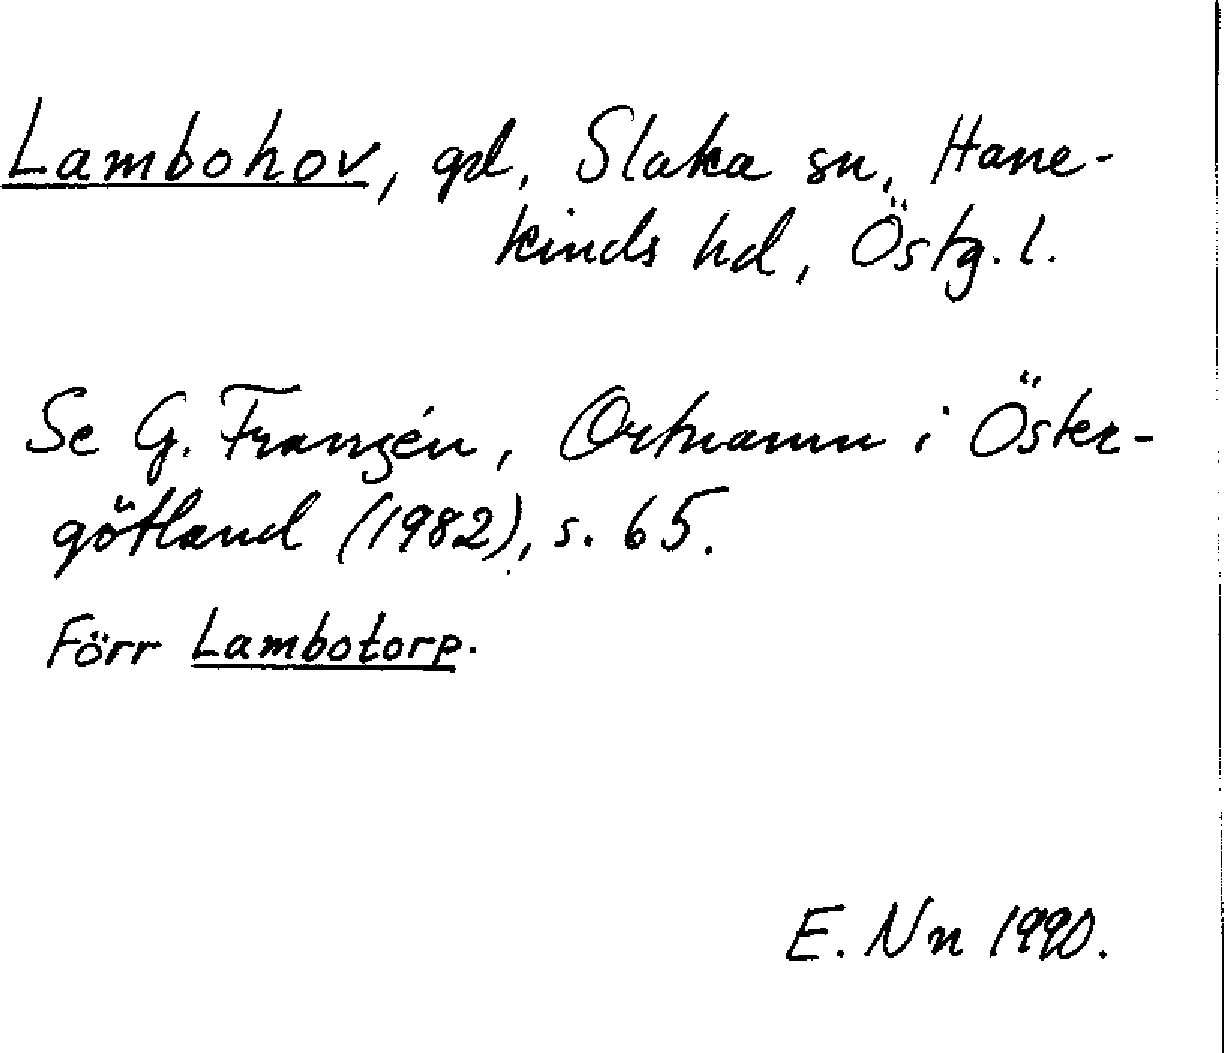 Lambohov, gd, Slaka sn, Hane-
kinds hd, Östg. l.
Se G. Franzén, Ortnamn i Öster-
götland (1982), s. 65.
Förr Lambotorp.
E. Nn 1990.